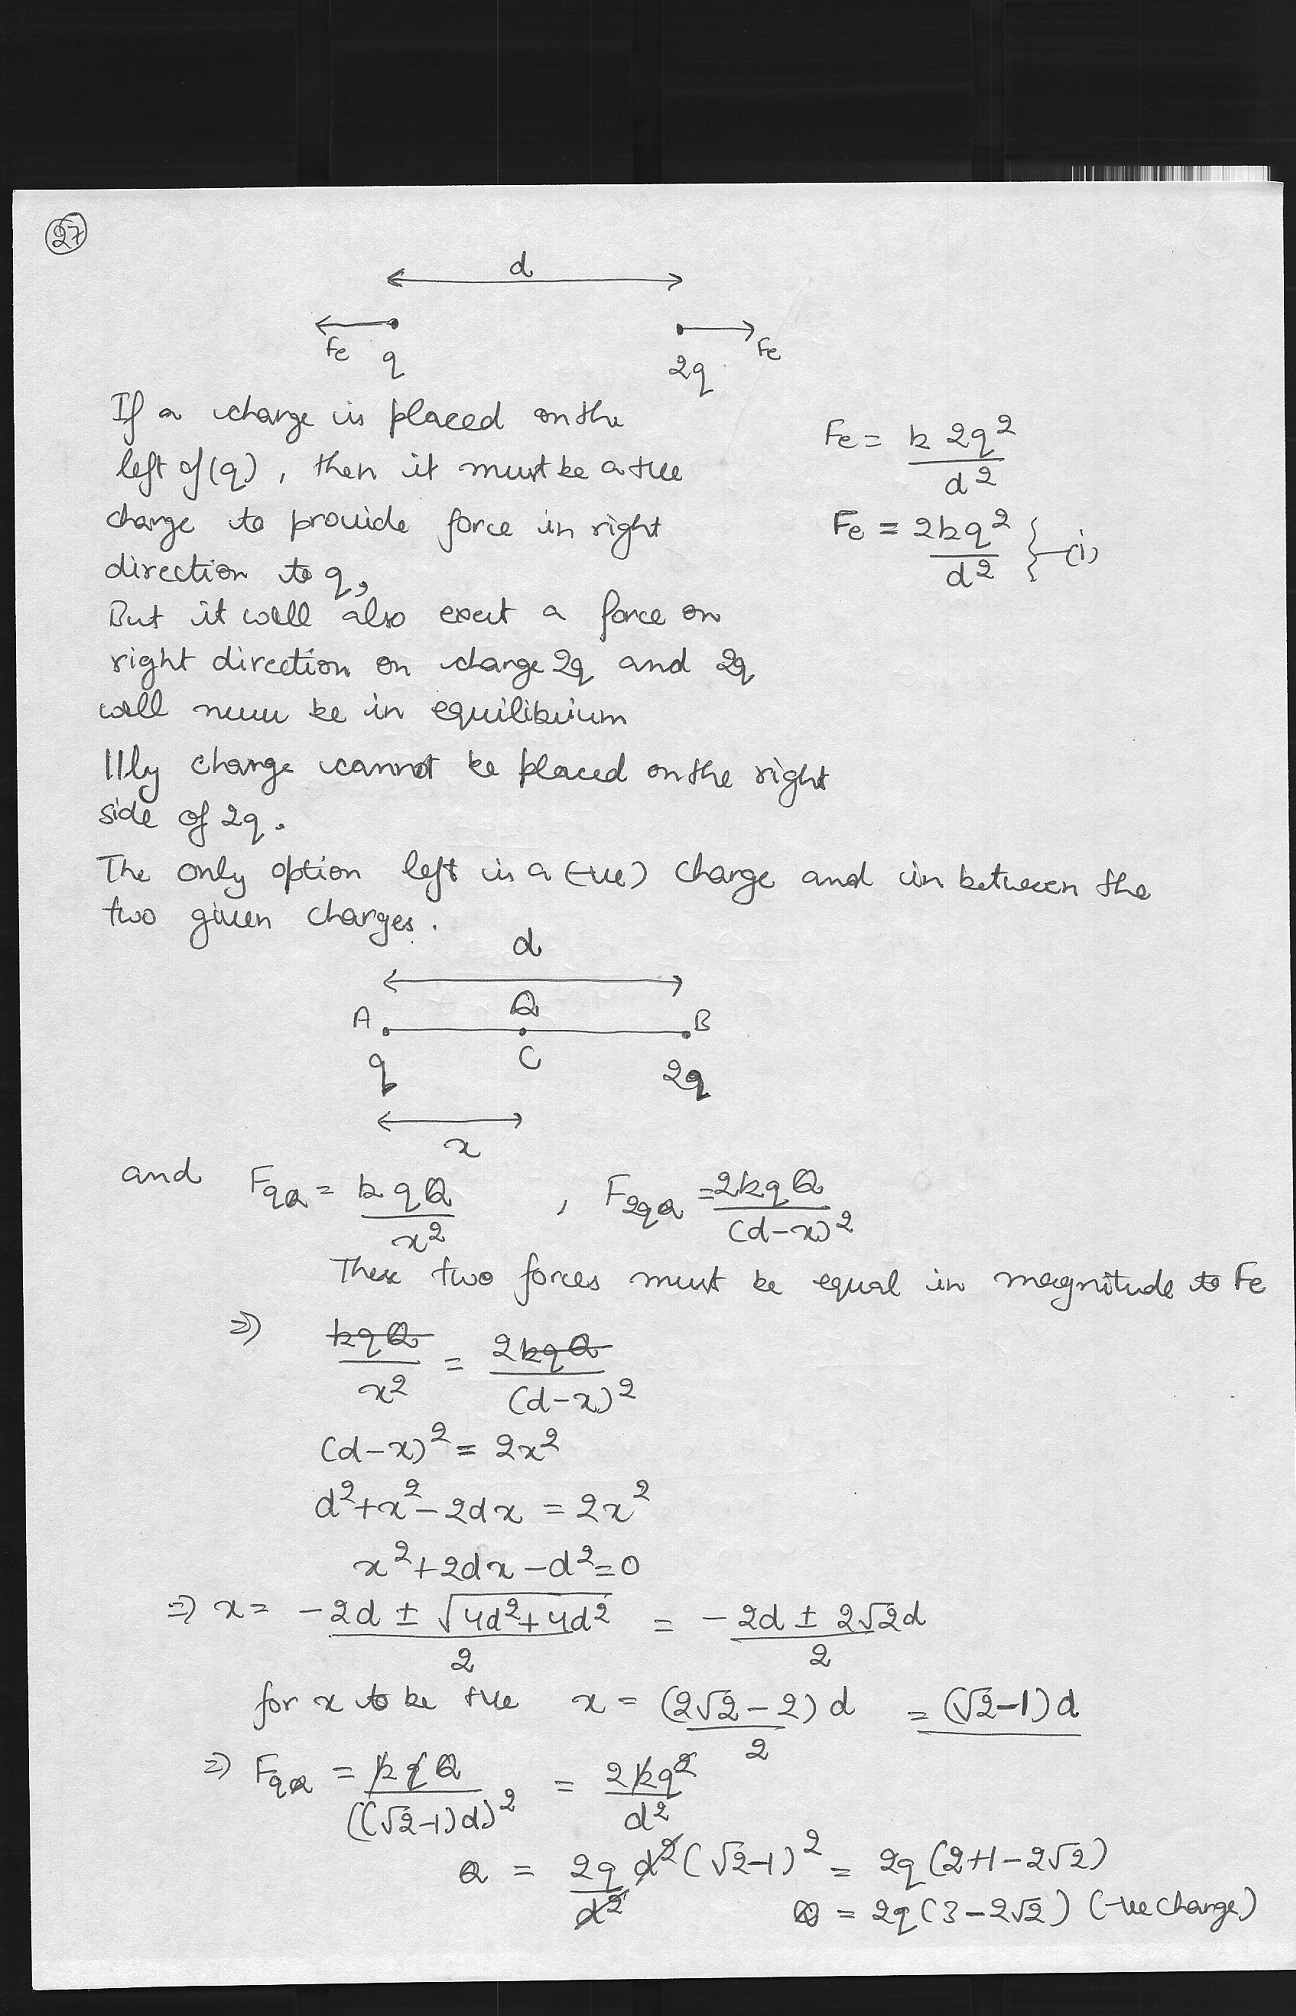 27
d
Fe q 2q Fe
If a charge is placed on the
left of (q), then it must be a +ve
charge to provide force in right
direction to q,
But it will also exert a force on
right direction on charge 2q and 2q
will never be in equilibrium
Fe = k 2q² / d²
Fe = 2kq² / d² } —(i)
llly charge cannot be placed on the right
side of 2q.
The only option left is a (-ve) charge and in between the
two given charges.
d
A Q B
q C 2q
x
and F_qQ = k q Q / x² , F_2qQ = 2kqQ / (d-x)²
These two forces must be equal in magnitude to Fe
⇒ kqQ / x² = 2kqQ / (d-x)²
(d-x)² = 2x²
d² + x² - 2dx = 2x²
x² + 2dx - d² = 0
⇒ x = -2d ± √(4d² + 4d²) / 2 = -2d ± 2√2d / 2
for x to be +ve x = (2√2 - 2) d / 2 = (√2-1) d
⇒ F_qQ = k q Q / ((√2-1)d)² = 2kq² / d²
Q = 2q / d² d² (√2-1)² = 2q (2+1-2√2)
Q = 2q (3-2√2) (-ve charge)